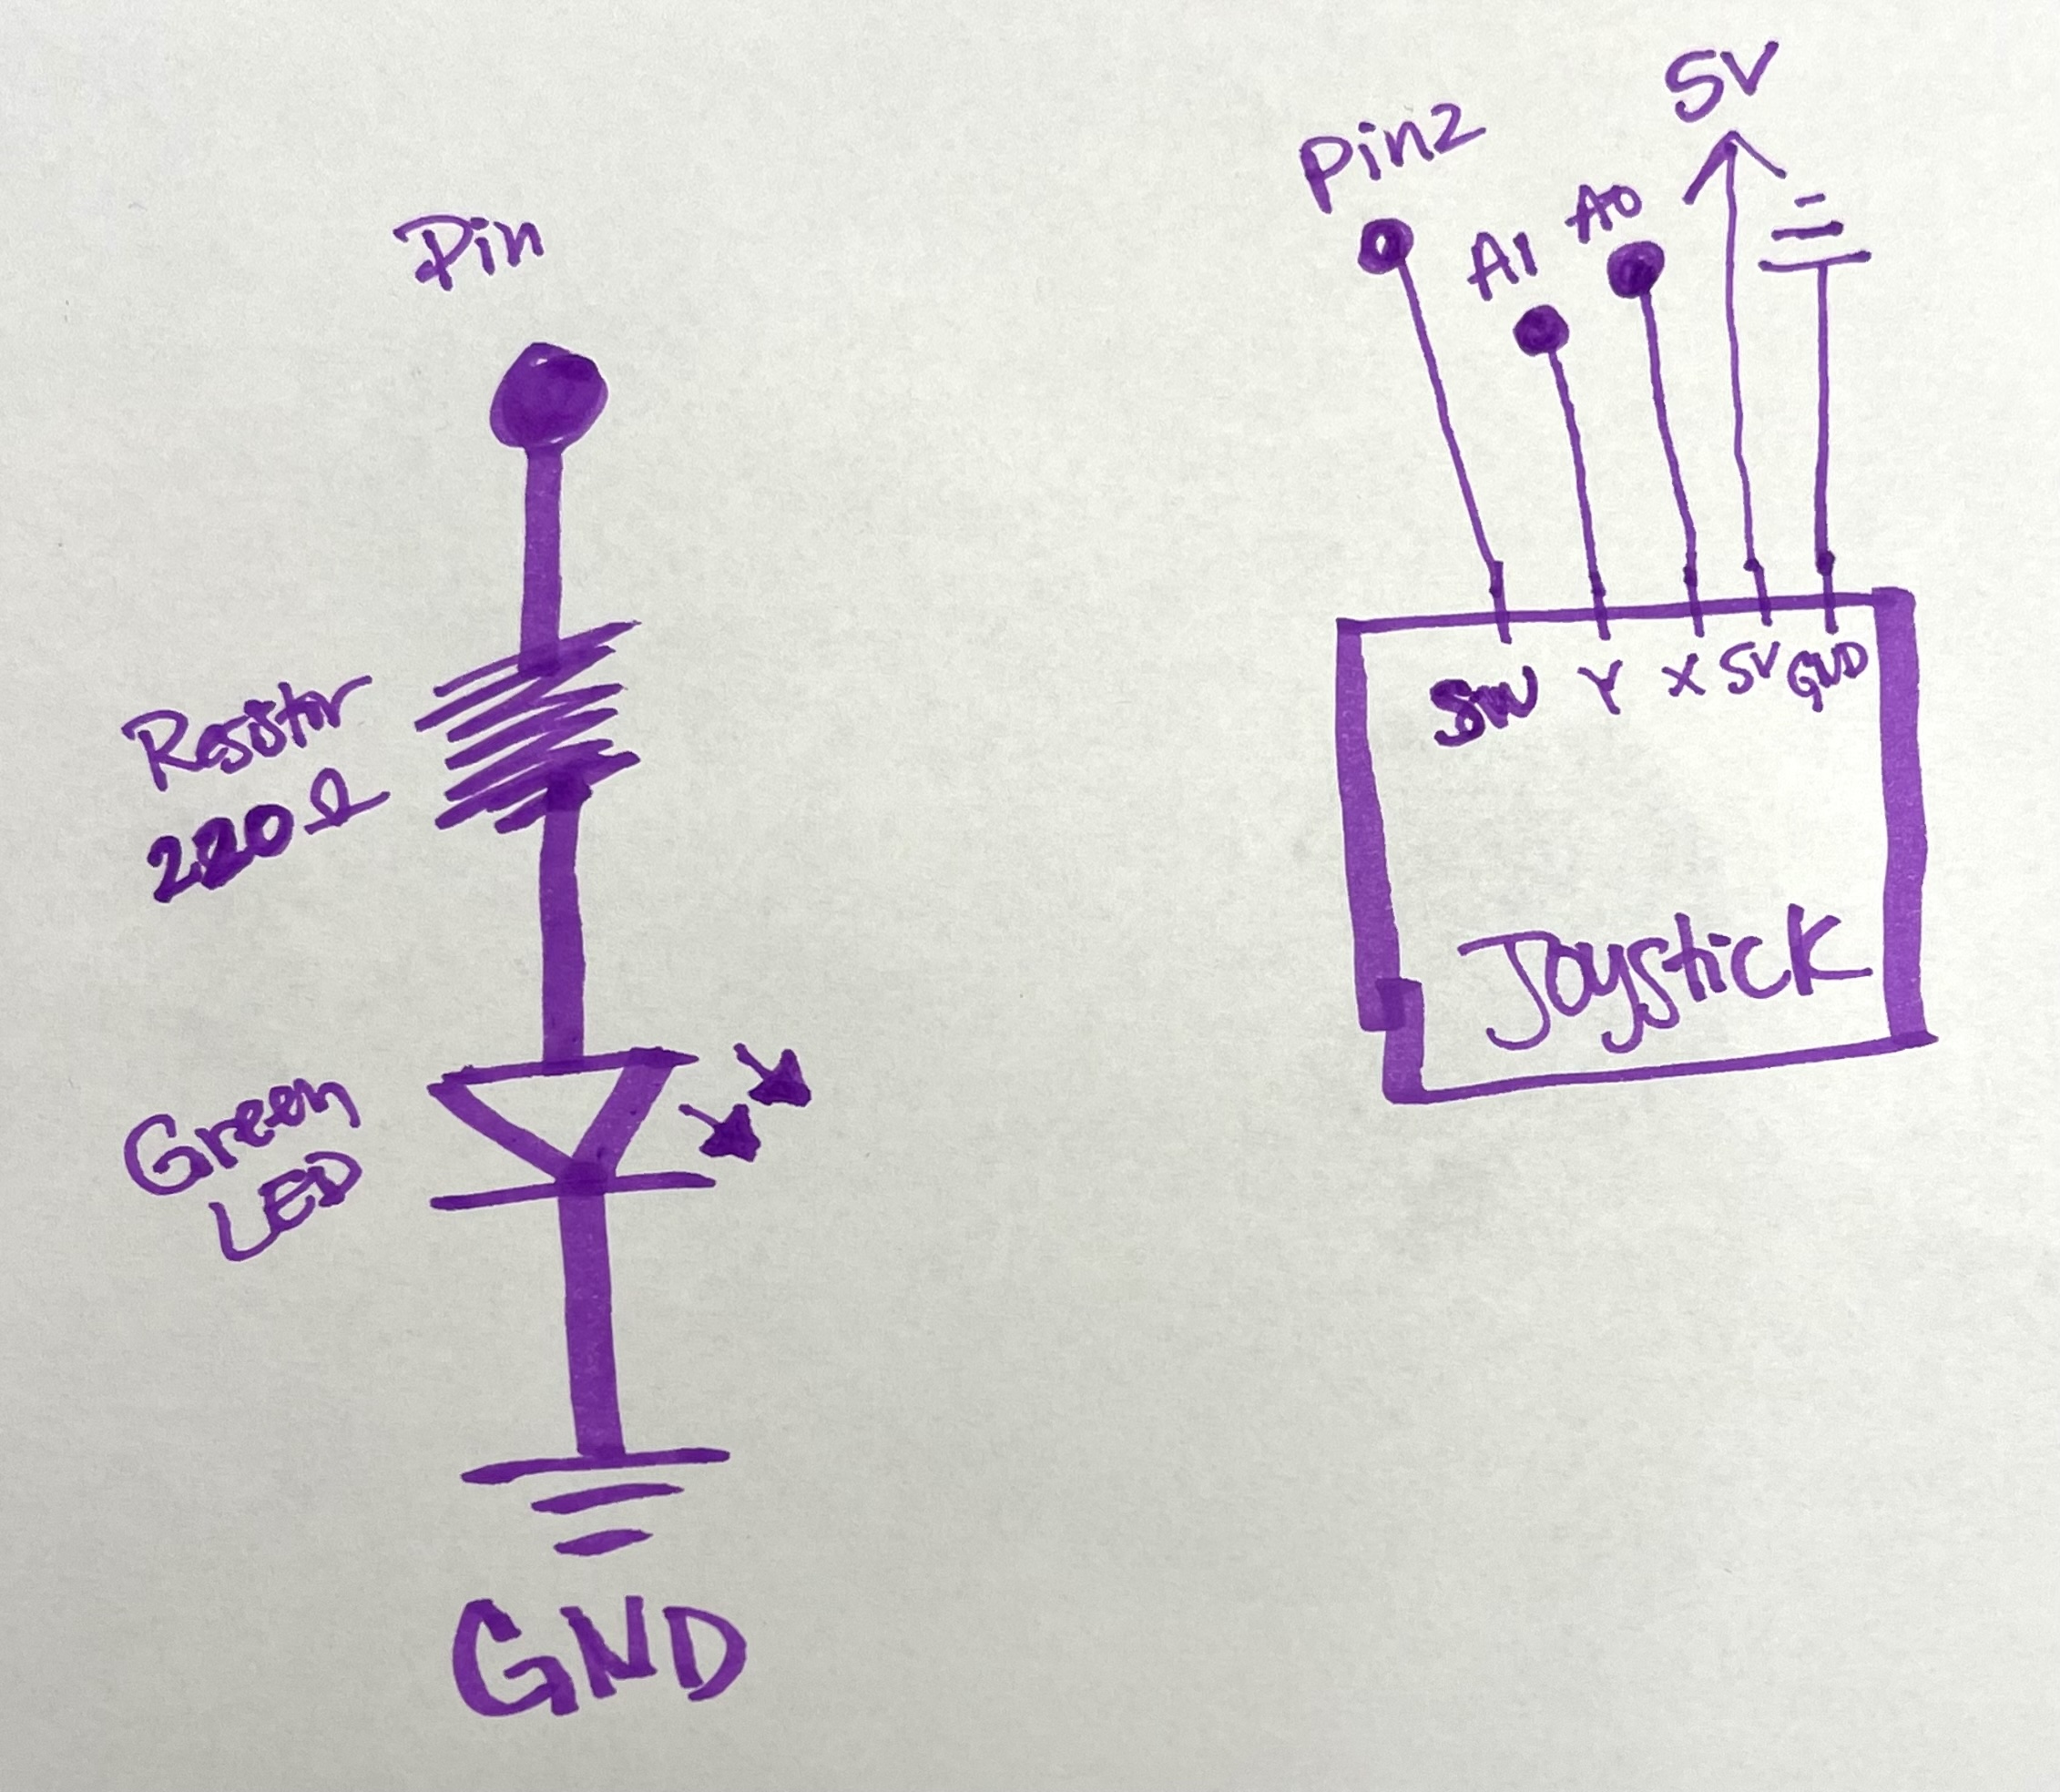 Pin
Resistor
220Ω
Green
LED
GND
Pin2
A1
A0
5V
SW Y X 5V GND
Joystick